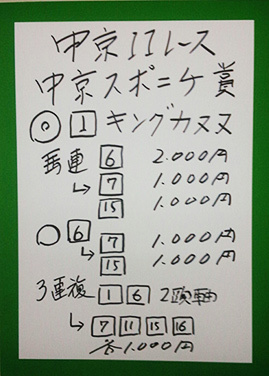 中京11レース
中京スポニチ賞
◎ 1 キングカヌヌ
馬連 6 2.000円
↳ 7 1.000円
15 1.000円
○ 6 7 1.000円
15 1.000円
3連複 1 6 2頭軸
↳ 7 11 15 16
各1.000円